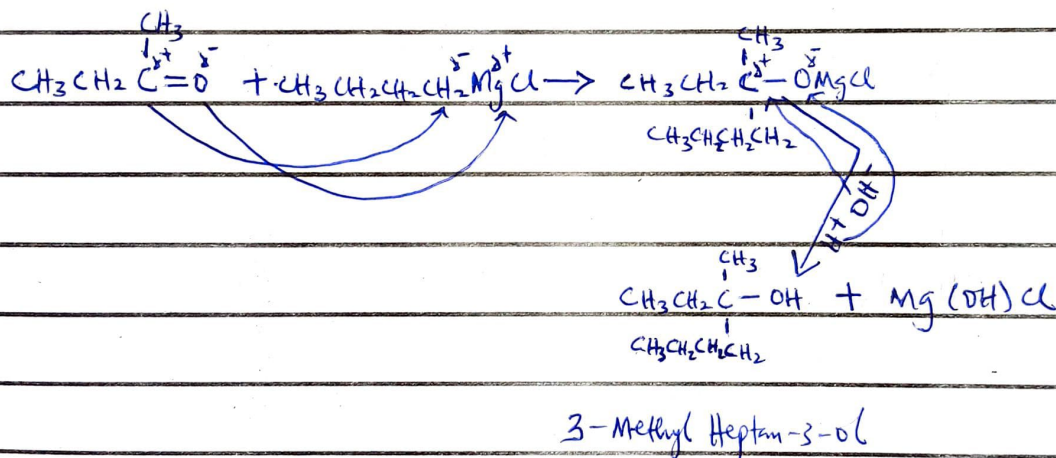 CH3
CH3CH2 C=O + CH3CH2CH2CH2MgCl → CH3CH2 C-OMgCl
δ+ δ- δ- δ+ CH3 δ+ δ-
CH3CH2CH2CH2
H+ OH-
CH3
CH3CH2 C-OH + Mg(OH)Cl
CH3CH2CH2CH2
3-Methyl Heptan-3-ol